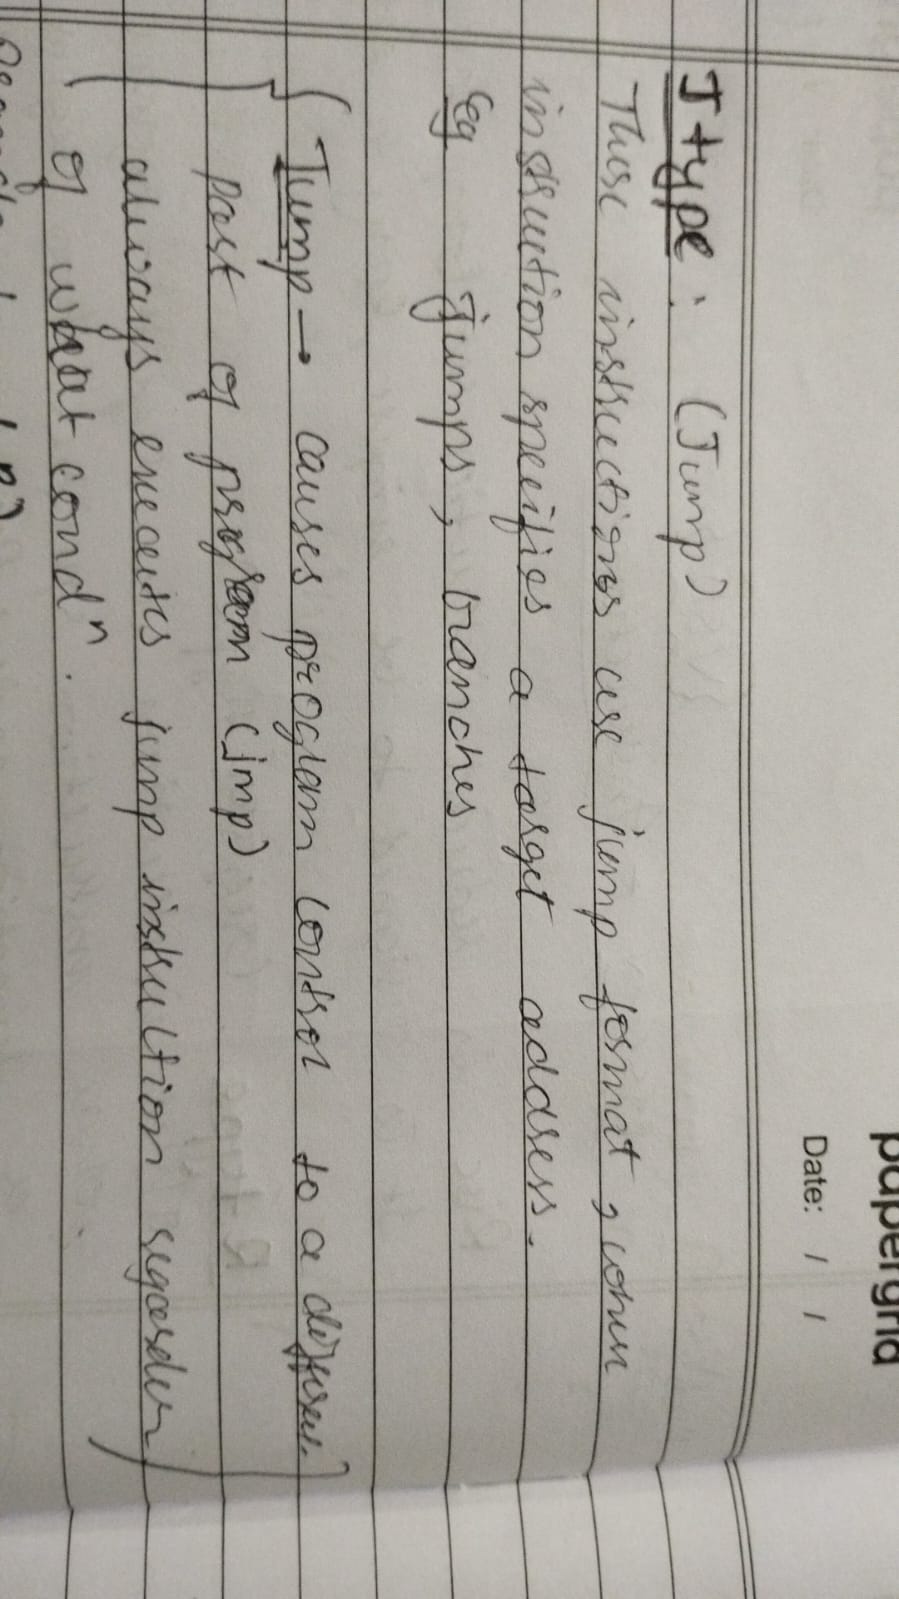 papergrid
Date: / /
J type: (Jump)
These instructions use jump format, when
instruction specifies a target address.
Eg jumps, branches
Jump → causes program control to a different
part of program (jmp)
always executes jump instruction regardless
of what condⁿ.